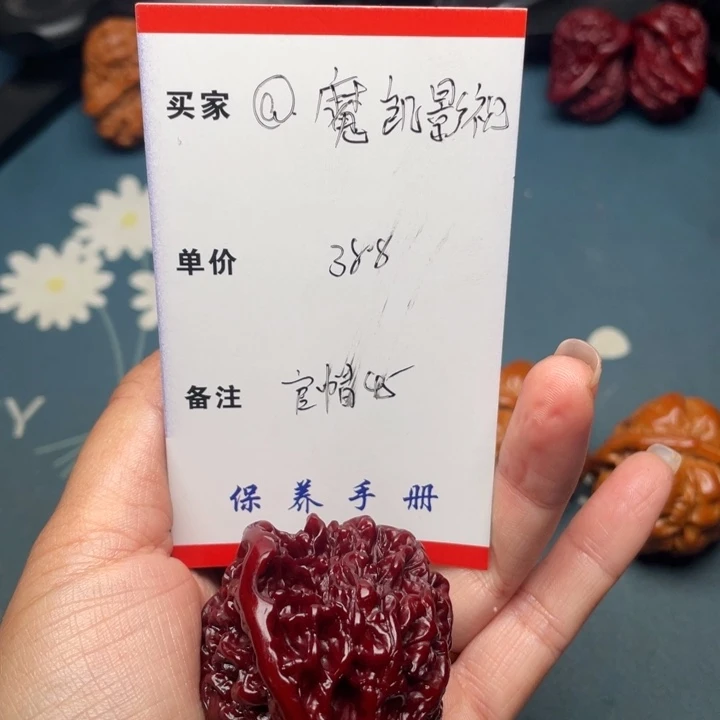 买家 @ 魔凯影视
单价 38.8
备注 官帽45
保养手册